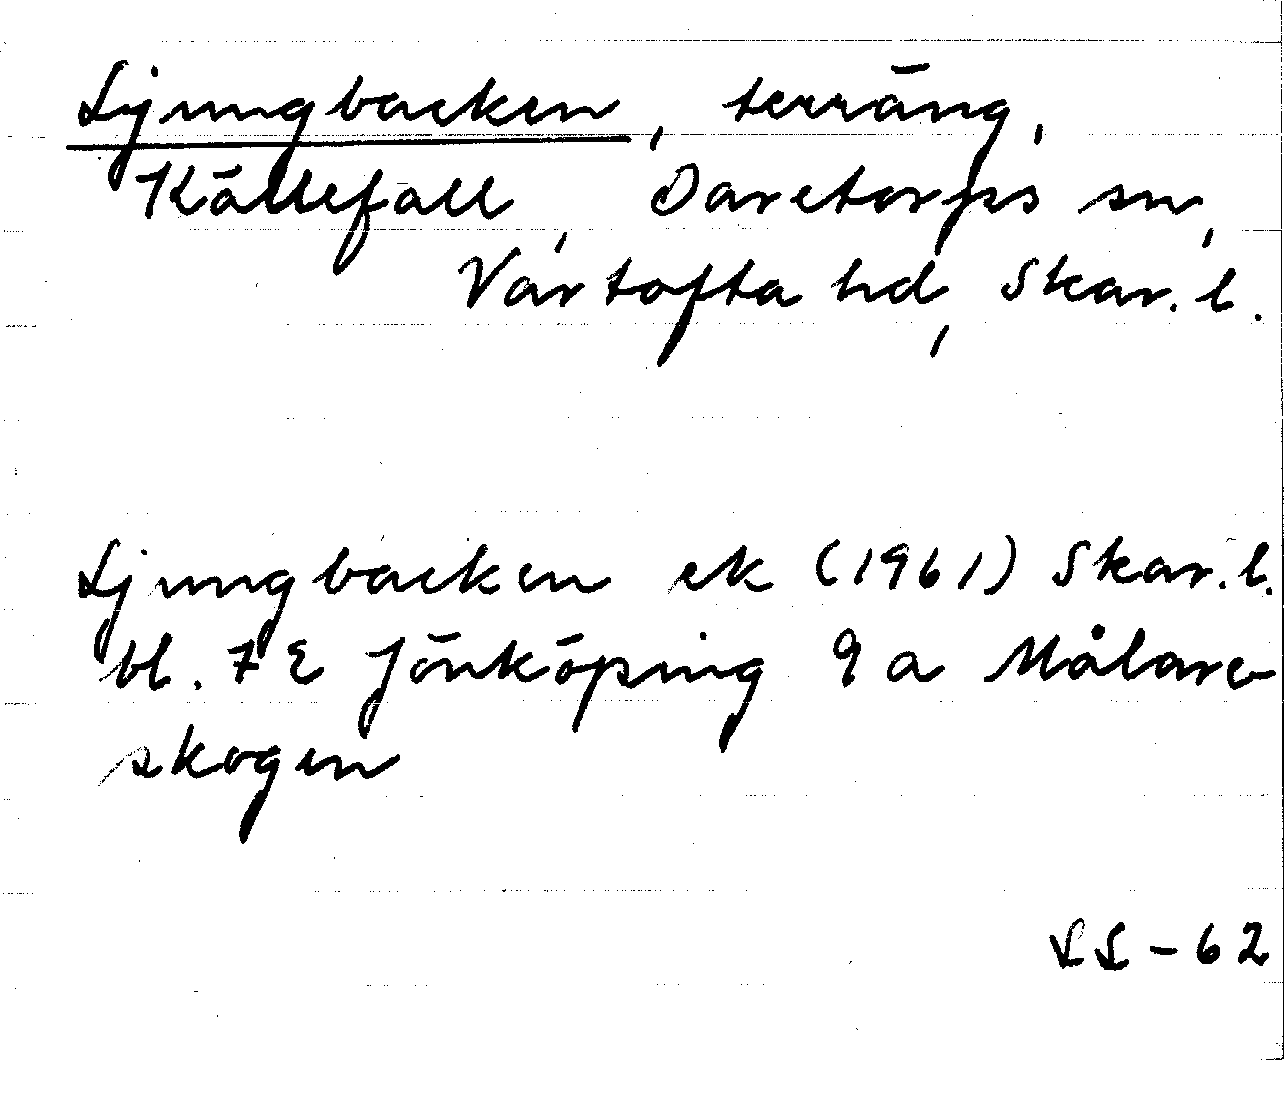 Ljungbacken, terräng,
Källefall, Daretorps sn,
Vartofta hd, Skar. l.
Ljungbacken ek (1961) Skar. l.
bl. 7 E Jönköping 9 a Målare-
skogen
LL - 62